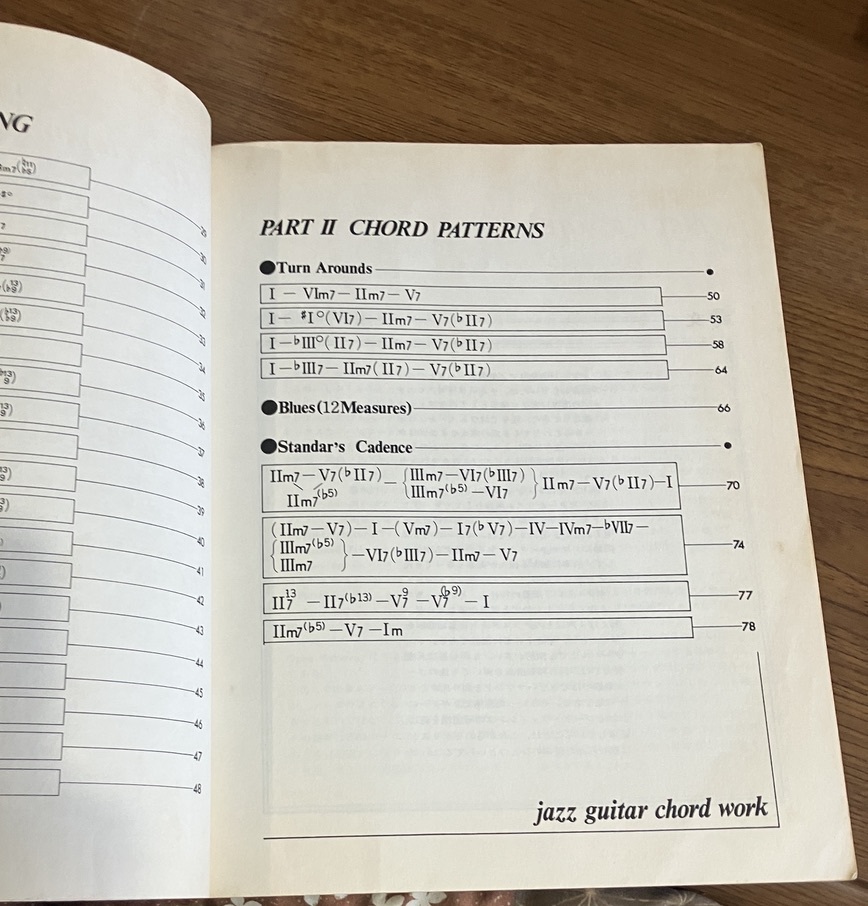 NG
29
30
31
32
33
34
35
36
37
38
39
40
41
42
43
44
45
46
47
48
PART II CHORD PATTERNS
●Turn Arounds
I − VIm7 − IIm7 − V7 50
I − ♯I°(VI7) − IIm7 − V7(♭II7) 53
I − ♭III°(II7) − IIm7 − V7(♭II7) 58
I − ♭III7 − IIm7(II7) − V7(♭II7) 64
●Blues(12Measures) 66
●Standar's Cadence
IIm7 − V7(♭II7) − {IIIm7 − VI7(♭III7) } IIm7 − V7(♭II7) − I 70
IIm7(♭5) IIIm7(♭5) − VI7
(IIm7 − V7) − I − (Vm7) − I7(♭V7) − IV − IVm7 − ♭VII7 −
{IIIm7(♭5) } − VI7(♭III7) − IIm7 − V7 74
IIIm7
II7 13 − II7(♭13) − V7 9 − V7(♭9) − I 77
IIm7(♭5) − V7 − Im 78
jazz guitar chord work